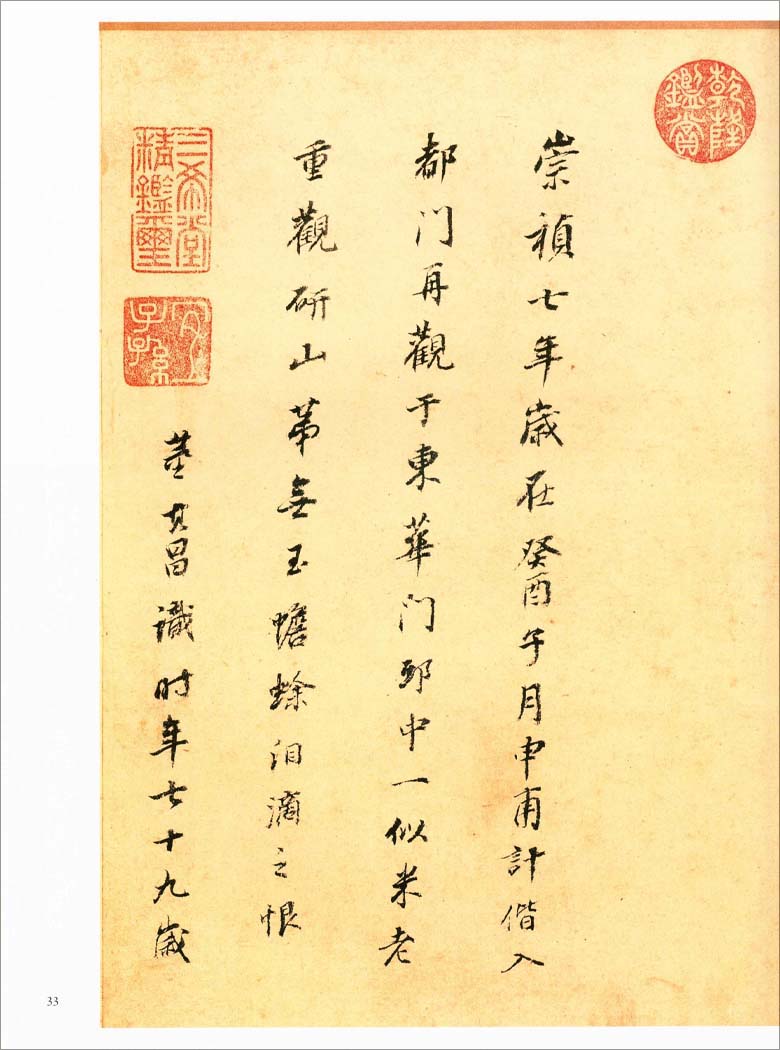 乾隆鑑賞
崇禎七年歲在癸酉子月申甫計偕入
都門再觀于東華門邸中一似米老
重觀研山苐無玉蟾蜍泪滴之恨
董其昌識時年七十九歲
三希堂精鑑璽
宜子孫
33